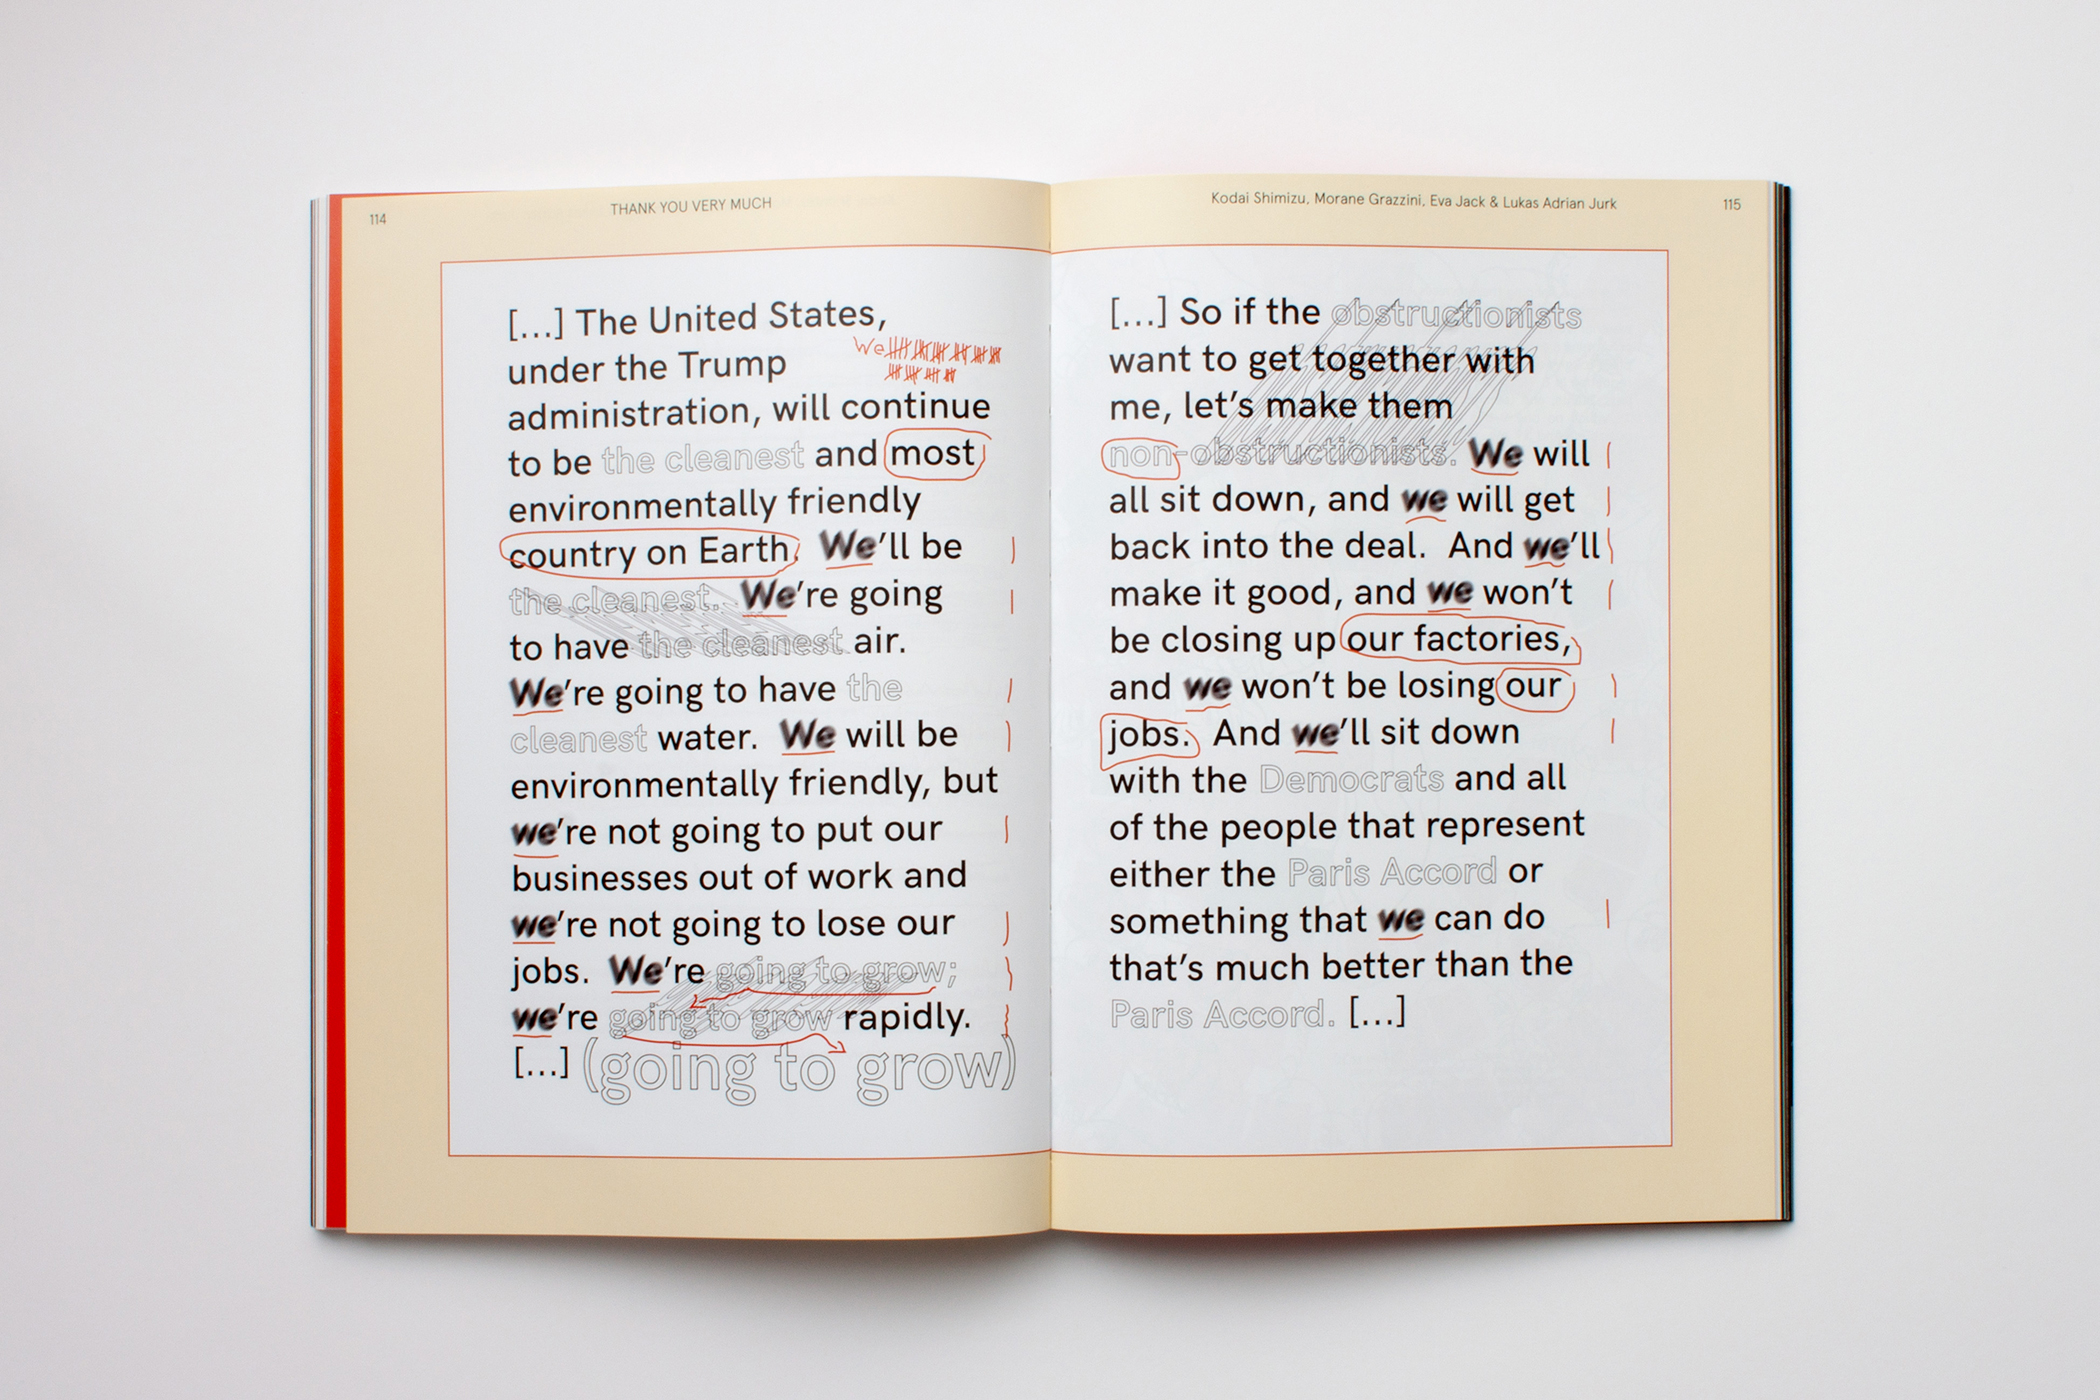 114
THANK YOU VERY MUCH
[...] The United States,
We
under the Trump
administration, will continue
to be the cleanest and most
environmentally friendly
country on Earth. We'll be
the cleanest. We're going
to have the cleanest air.
We're going to have the
cleanest water. We will be
environmentally friendly, but
we're not going to put our
businesses out of work and
we're not going to lose our
jobs. We're going to grow;
we're going to grow rapidly.
[...] (going to grow)
Kodai Shimizu, Morane Grazzini, Eva Jack & Lukas Adrian Jurk
115
[...] So if the obstructionists
want to get together with
me, let's make them
non-obstructionists. We will
all sit down, and we will get
back into the deal. And we'll
make it good, and we won't
be closing up our factories,
and we won't be losing our
jobs. And we'll sit down
with the Democrats and all
of the people that represent
either the Paris Accord or
something that we can do
that's much better than the
Paris Accord. [...]